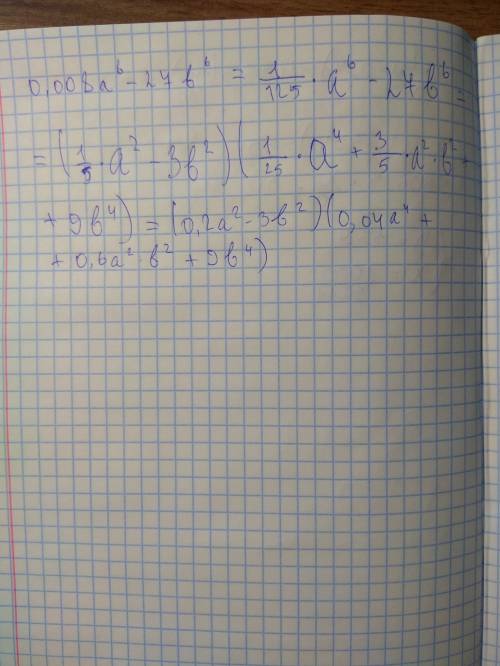 0,008a⁶ - 27b⁶ = 1/125 · a⁶ - 27b⁶ =
= (1/5 · a² - 3b²)(1/25 · a⁴ + 3/5 · a² · b² +
+ 9b⁴) = (0,2a² - 3b²)(0,04a⁴ +
+ 0,6a² · b² + 9b⁴)